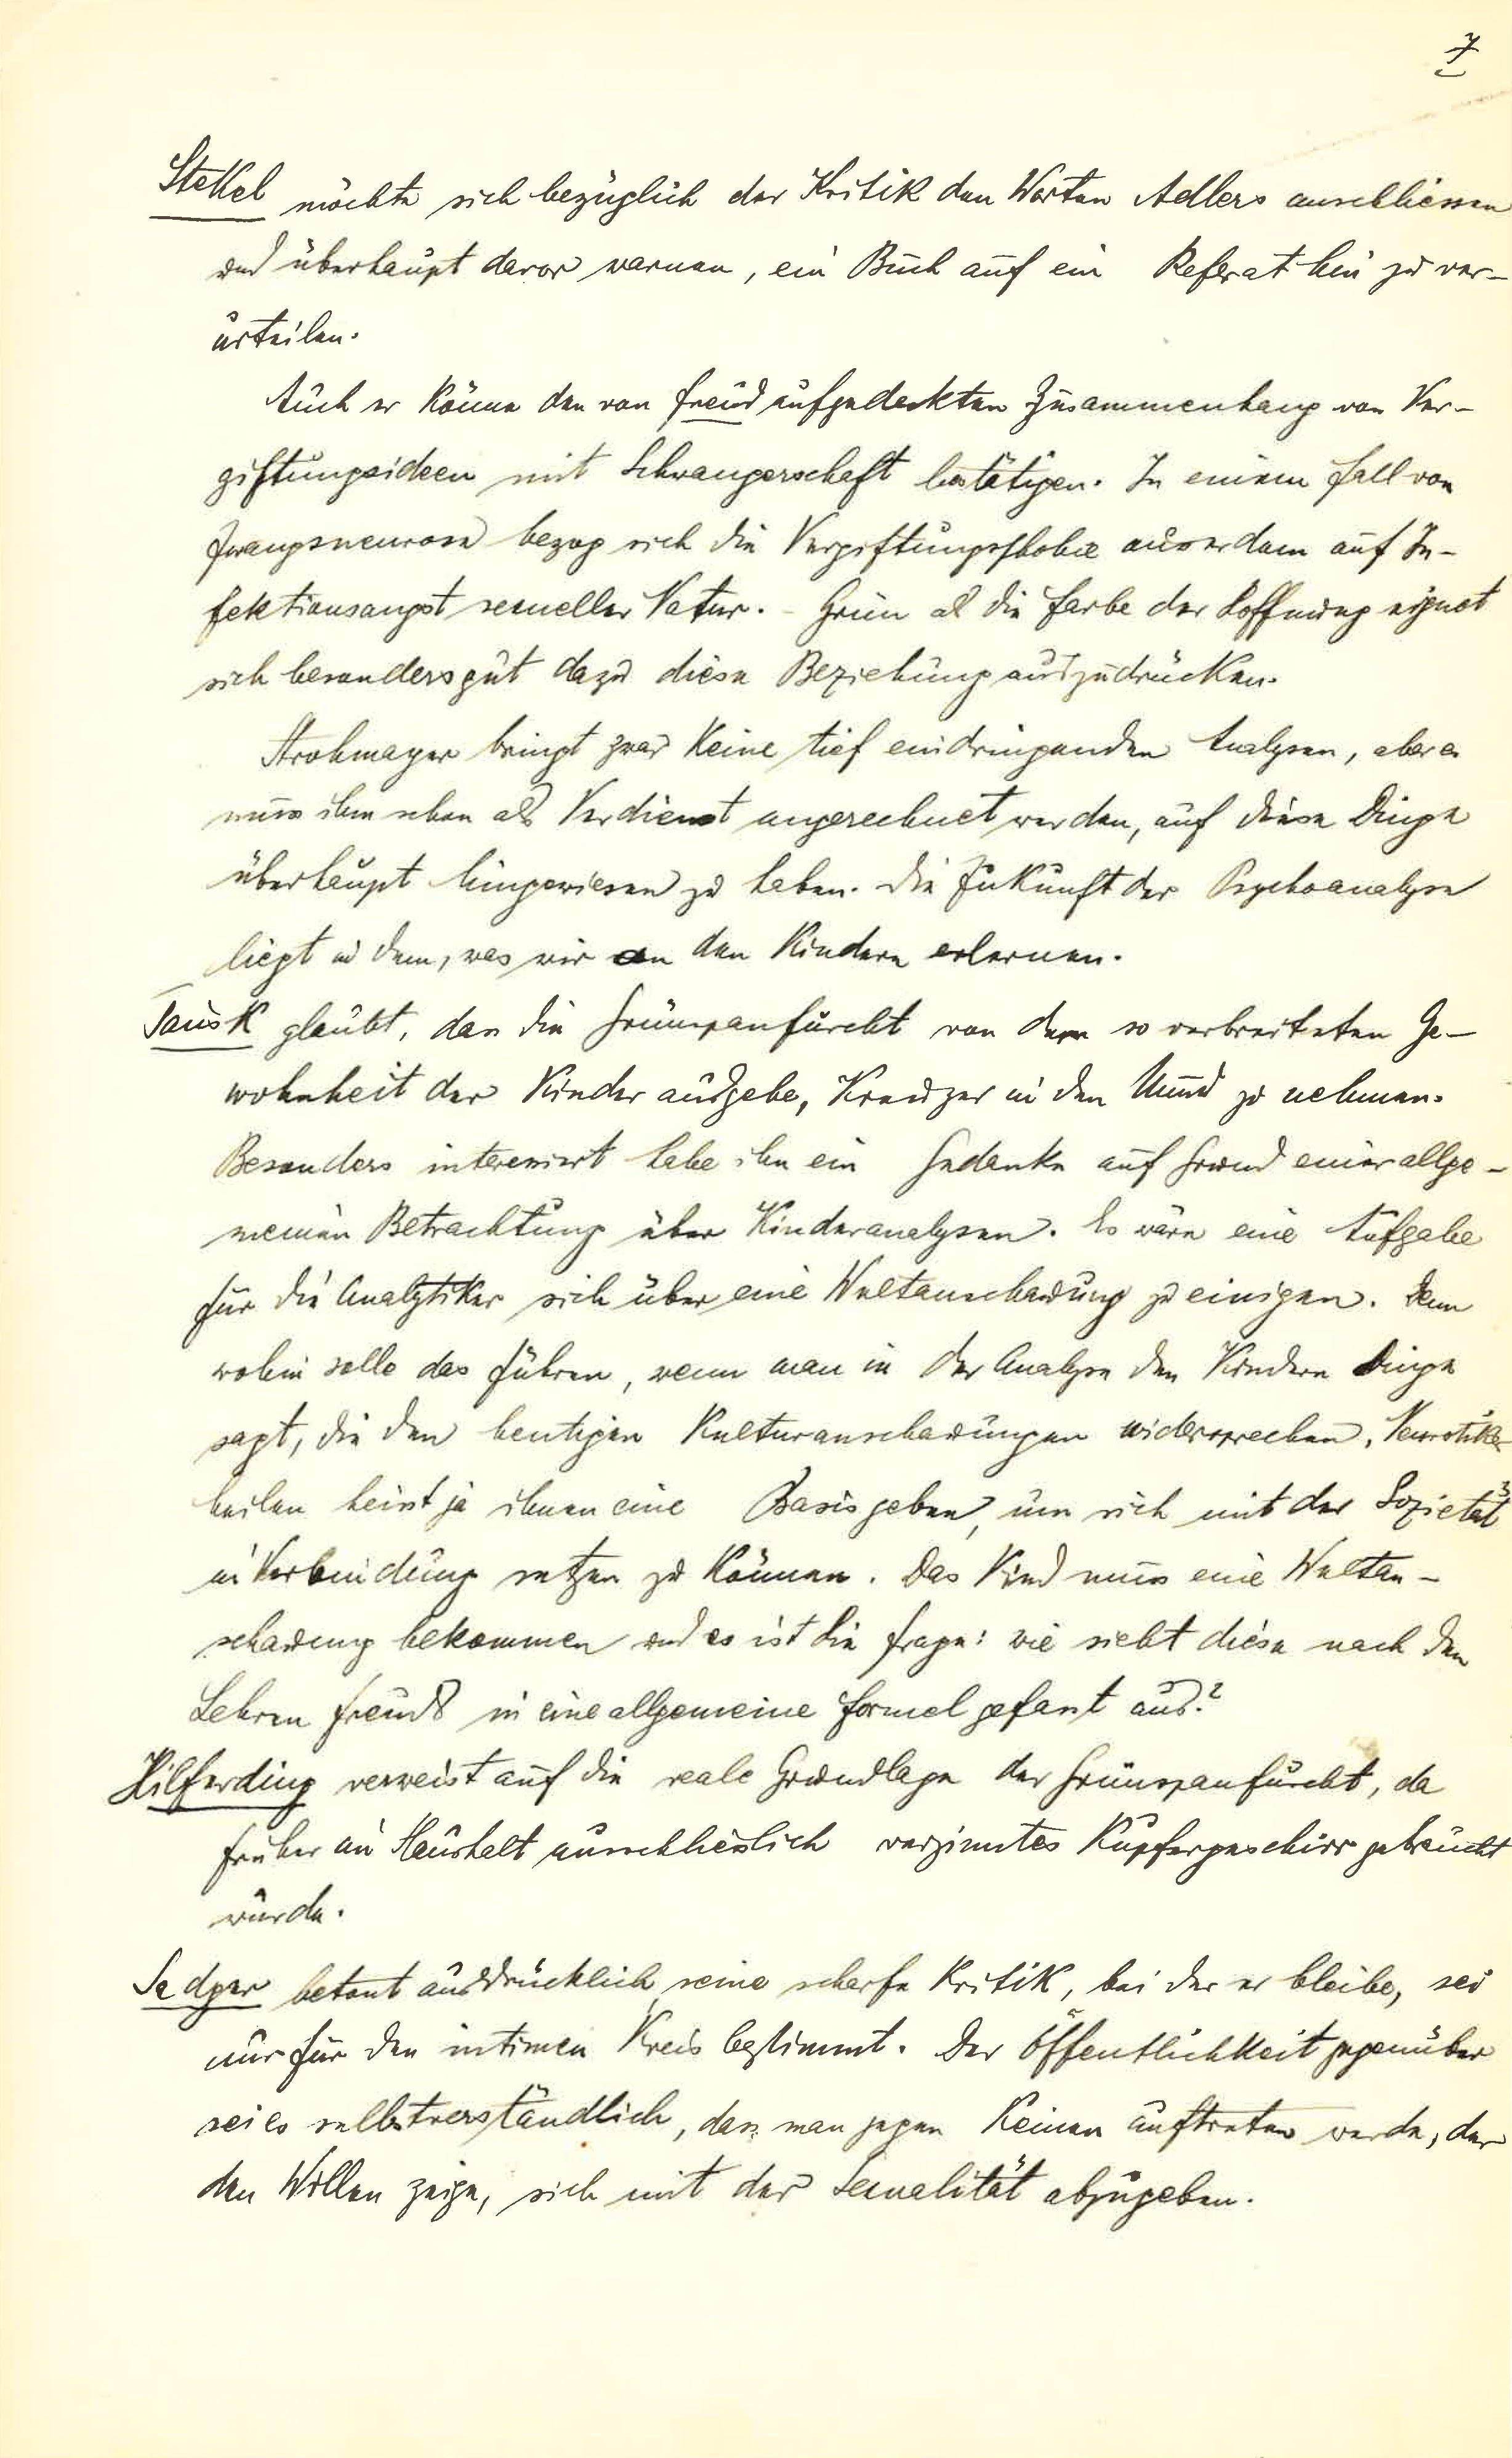 7
Stekel möchte sich bezüglich der Kritik den Worten Adlers anschliessen
und überhaupt davor warnen, ein Buch auf ein Referat hin zu ver-
urteilen.
Auch er könne den von Freud aufgedeckten Zusammenhang von Ver-
giftungsideen mit Schwangerschaft bestätigen. In einem Fall von
Zwangsneurose bezog sich die Vergiftungsphobie ausserdem auf In-
fektionsangst sexueller Natur. - Grün als die Farbe der Hoffnung eignet
sich besonders gut dazu diese Beziehung auszudrücken.
Strohmayer bringt zwar keine tief eindringenden Analysen, aber es
muss ihm schon als Verdienst angerechnet werden, auf diese Dinge
überhaupt hingewiesen zu haben. Die Zukunft der Psychoanalyse
liegt in dem, was wir an den Kindern erlernen.
Tausk glaubt, dass die Grünspanfurcht von der so verbreiteten Ge-
wohnheit der Kinder ausgehe, Kreuzer in den Mund zu nehmen.
Besonders interessiert habe ihn ein Gedanke auf Grund einer allge-
meinen Betrachtung über Kinderanalysen. Es wäre eine Aufgabe
für die Analytiker sich über eine Weltanschauung zu einigen. Denn
wohin solle das führen, wenn man in der Analyse den Kindern Dinge
sagt, die den heutigen Kulturanschauungen widersprechen. Neurotiker
heilen heisst ja ihnen eine Basis geben, um sich mit der Sozietät
in Verbindung setzen zu können. Das Kind muss eine Weltan-
schauung bekommen und es ist die Frage: wie sieht diese nach den
Lehren Freuds in eine allgemeine Formel gefasst aus?
Hilferding verweist auf die reale Grundlage der Grünspanfurcht, da
früher im Haushalt ausschliesslich verzinntes Kupfergeschirr gebraucht
wurde.
Sadger betont ausdrücklich, seine scharfe Kritik, bei der er bleibe, sei
nur für den intimen Kreis bestimmt. Der Öffentlichkeit gegenüber
sei es selbstverständlich, dass man gegen keinen auftreten werde, der
den Willen zeige, sich mit der Sexualität abzugeben.